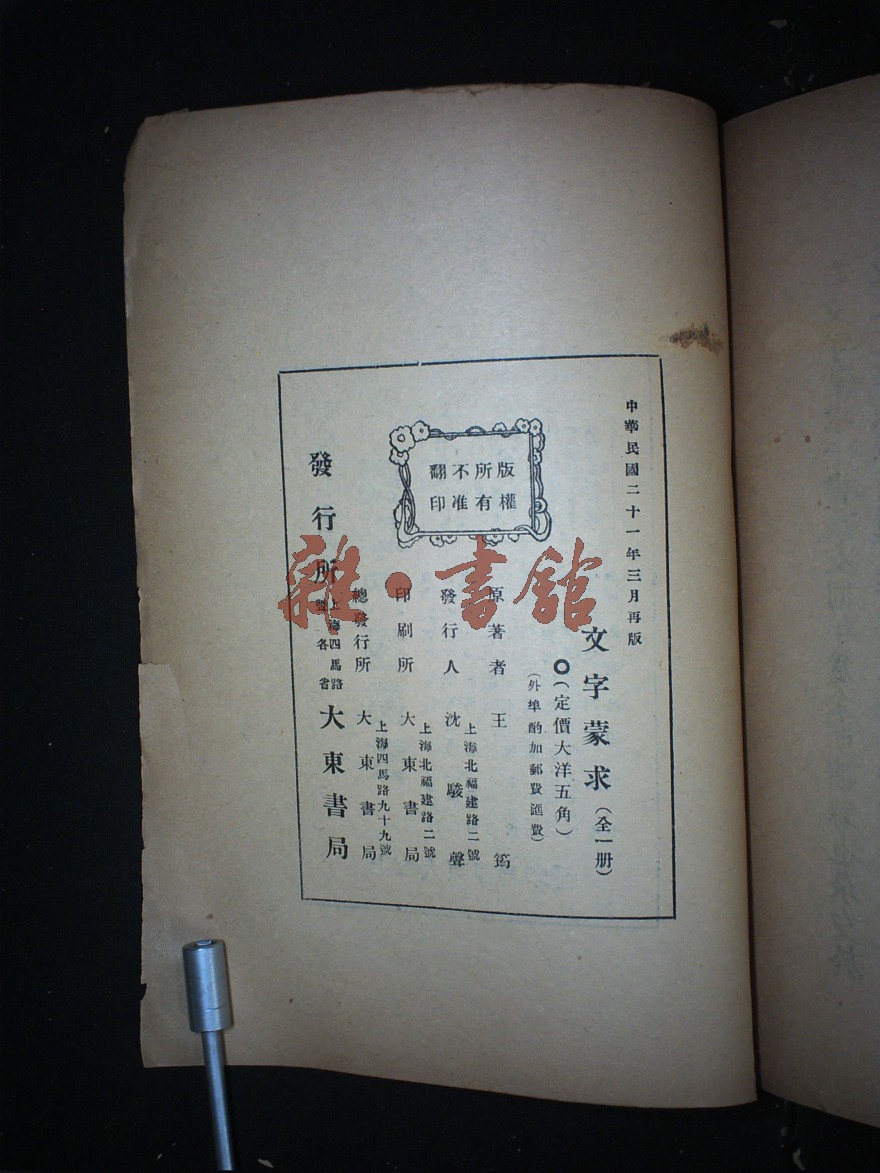 中華民國二十一年三月再版
文字蒙求（全一册）
（定價大洋五角）
（外埠酌加郵費滙費）
版權
所有
不准
翻印
原著者 王筠
發行人 沈駿聲
上海北福建路二號
印刷所 大東書局
上海北福建路二號
總發行所 大東書局
上海四馬路九十九號
發行所 大東書局
上海四馬路
各省
雜·書館